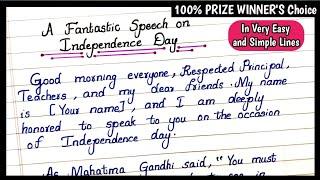 100% PRIZE WINNER'S Choice
A Fantastic Speech on
Independence Day
In Very Easy
and Simple Lines
Good morning everyone, Respected Principal,
Teachers, and my dear friends. My name
is [Your name], and I am deeply
honored to speak to you on the occasion
of Independence day.
As Mahatma Gandhi said, "You must